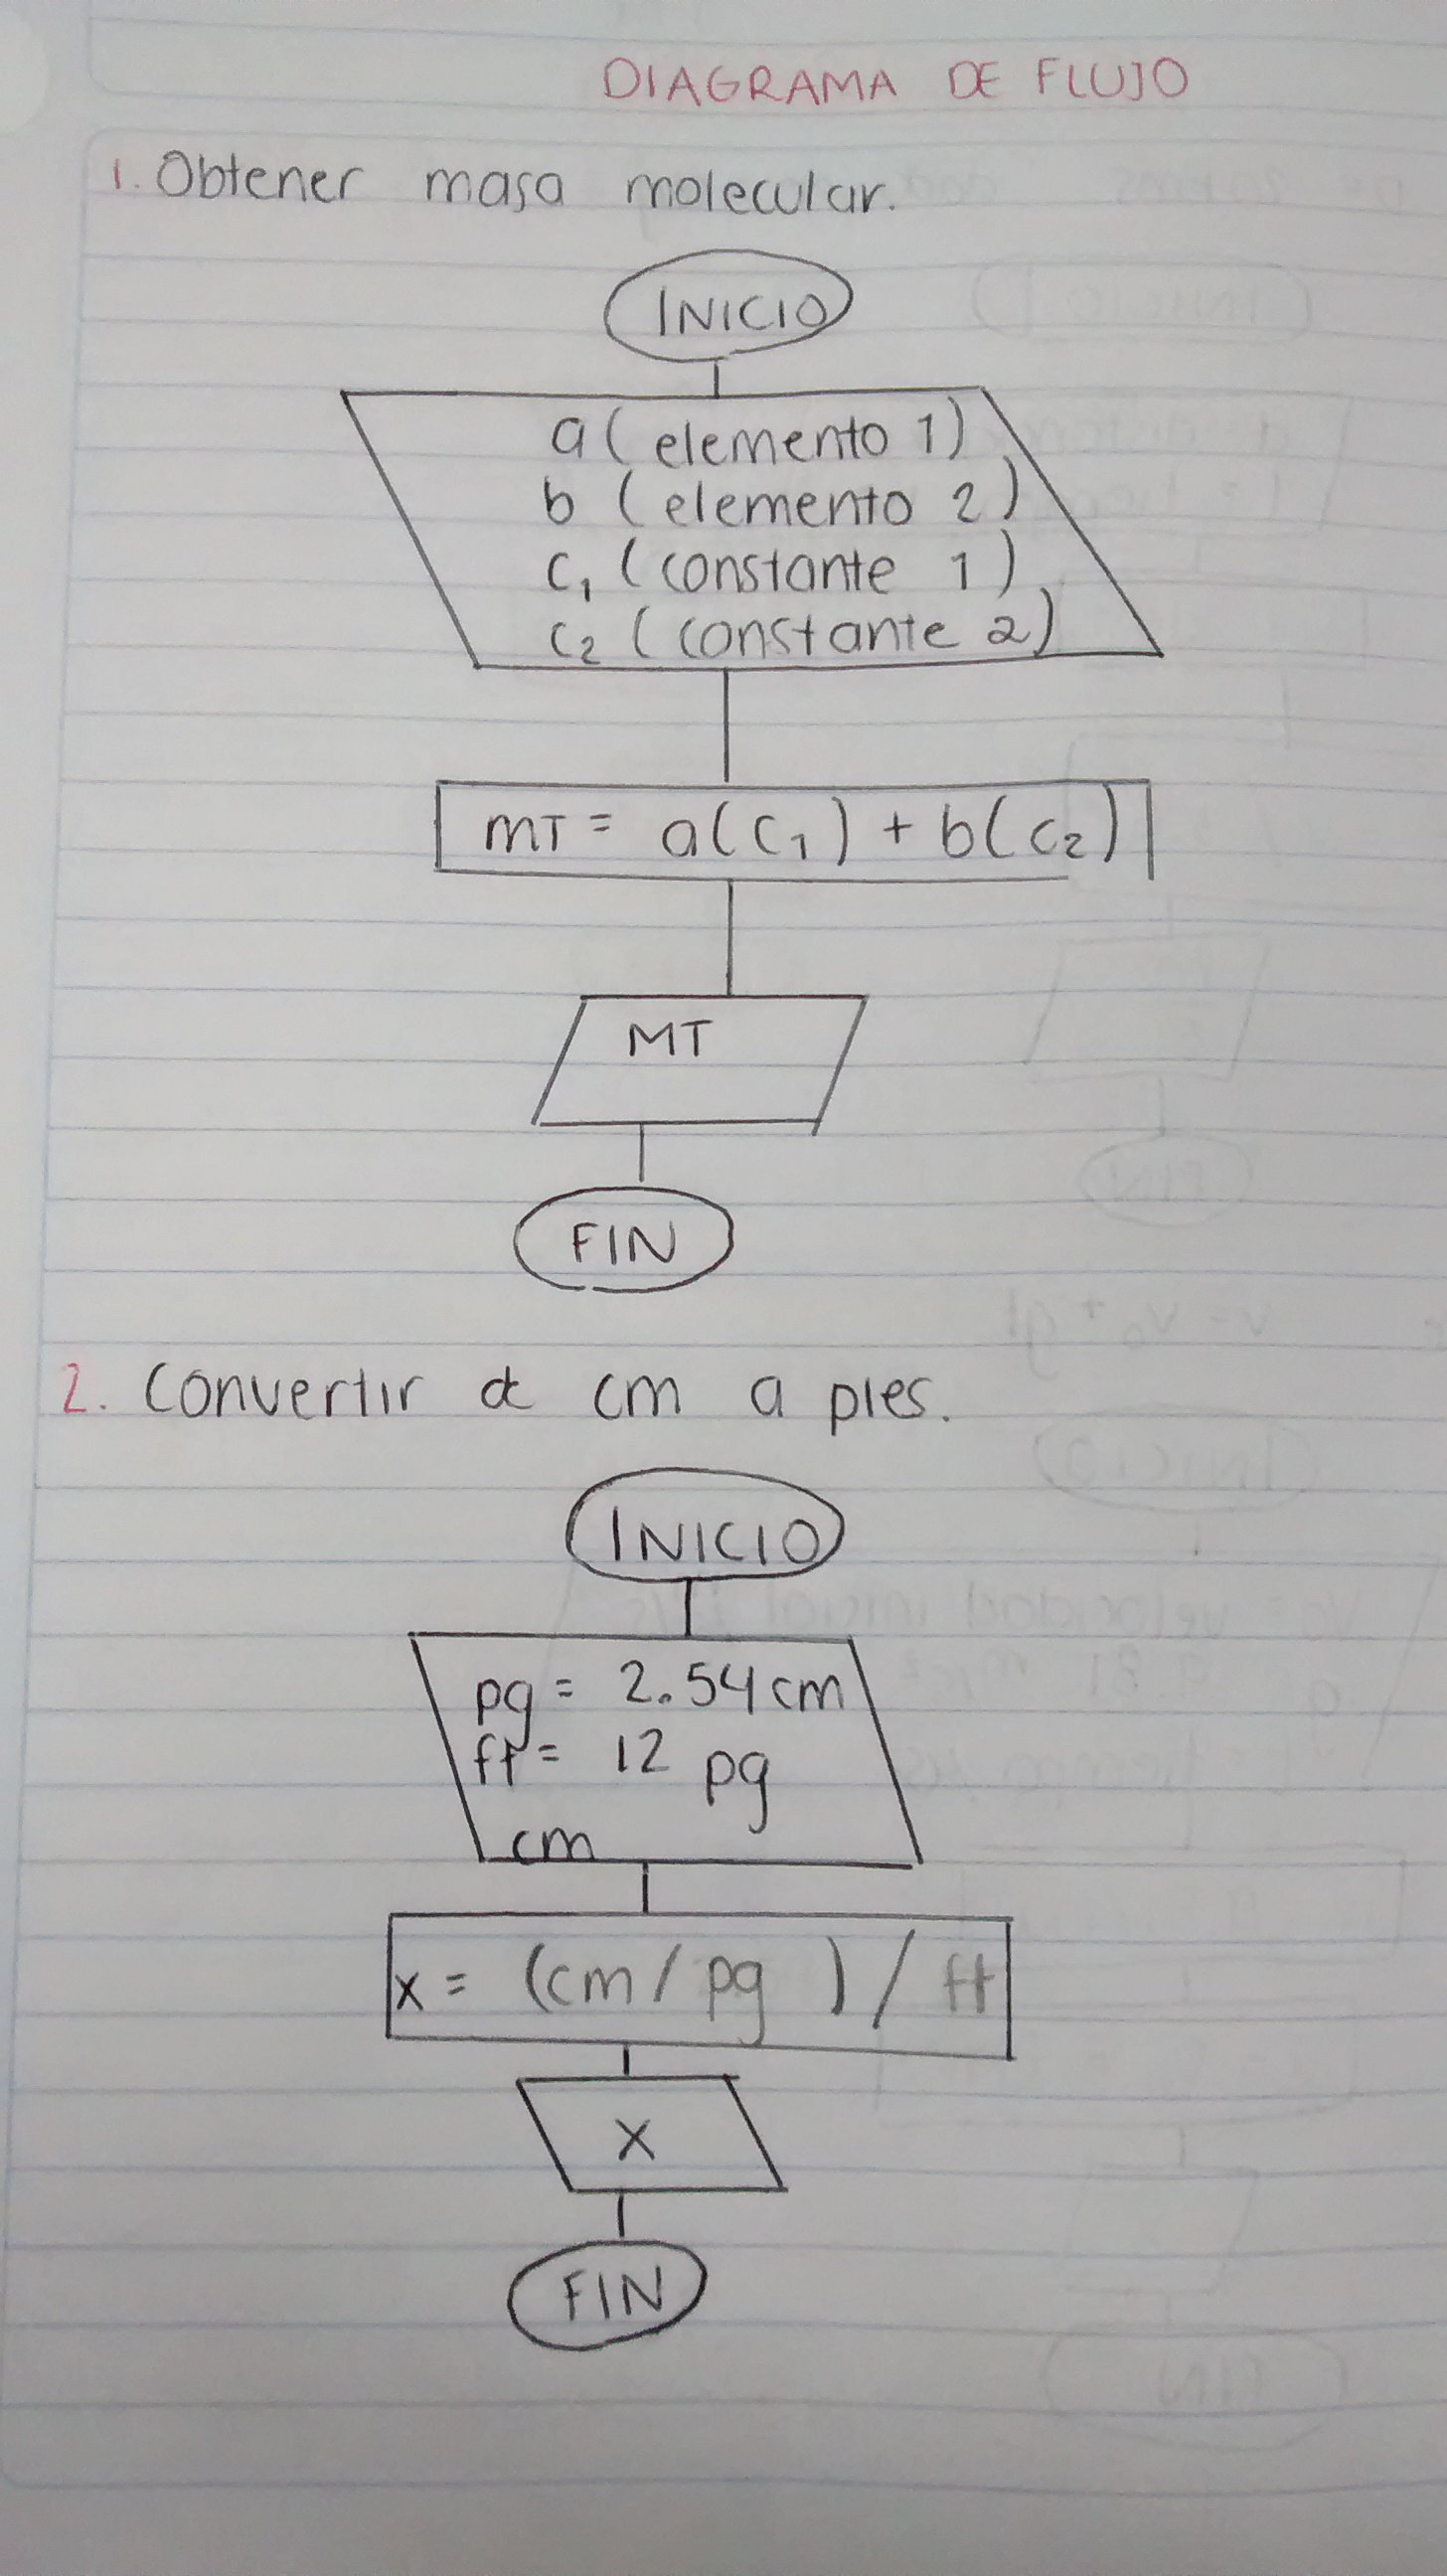 DIAGRAMA DE FLUJO
1. Obtener masa molecular.
INICIO
a ( elemento 1)
b ( elemento 2 )
c₁ ( constante 1 )
c₂ ( constante 2)
mT = a(c₁) + b(c₂)
MT
FIN
2. Convertir de cm a pies.
INICIO
pg = 2.54 cm
ft = 12 pg
cm
x = (cm / pg ) / ft
X
FIN